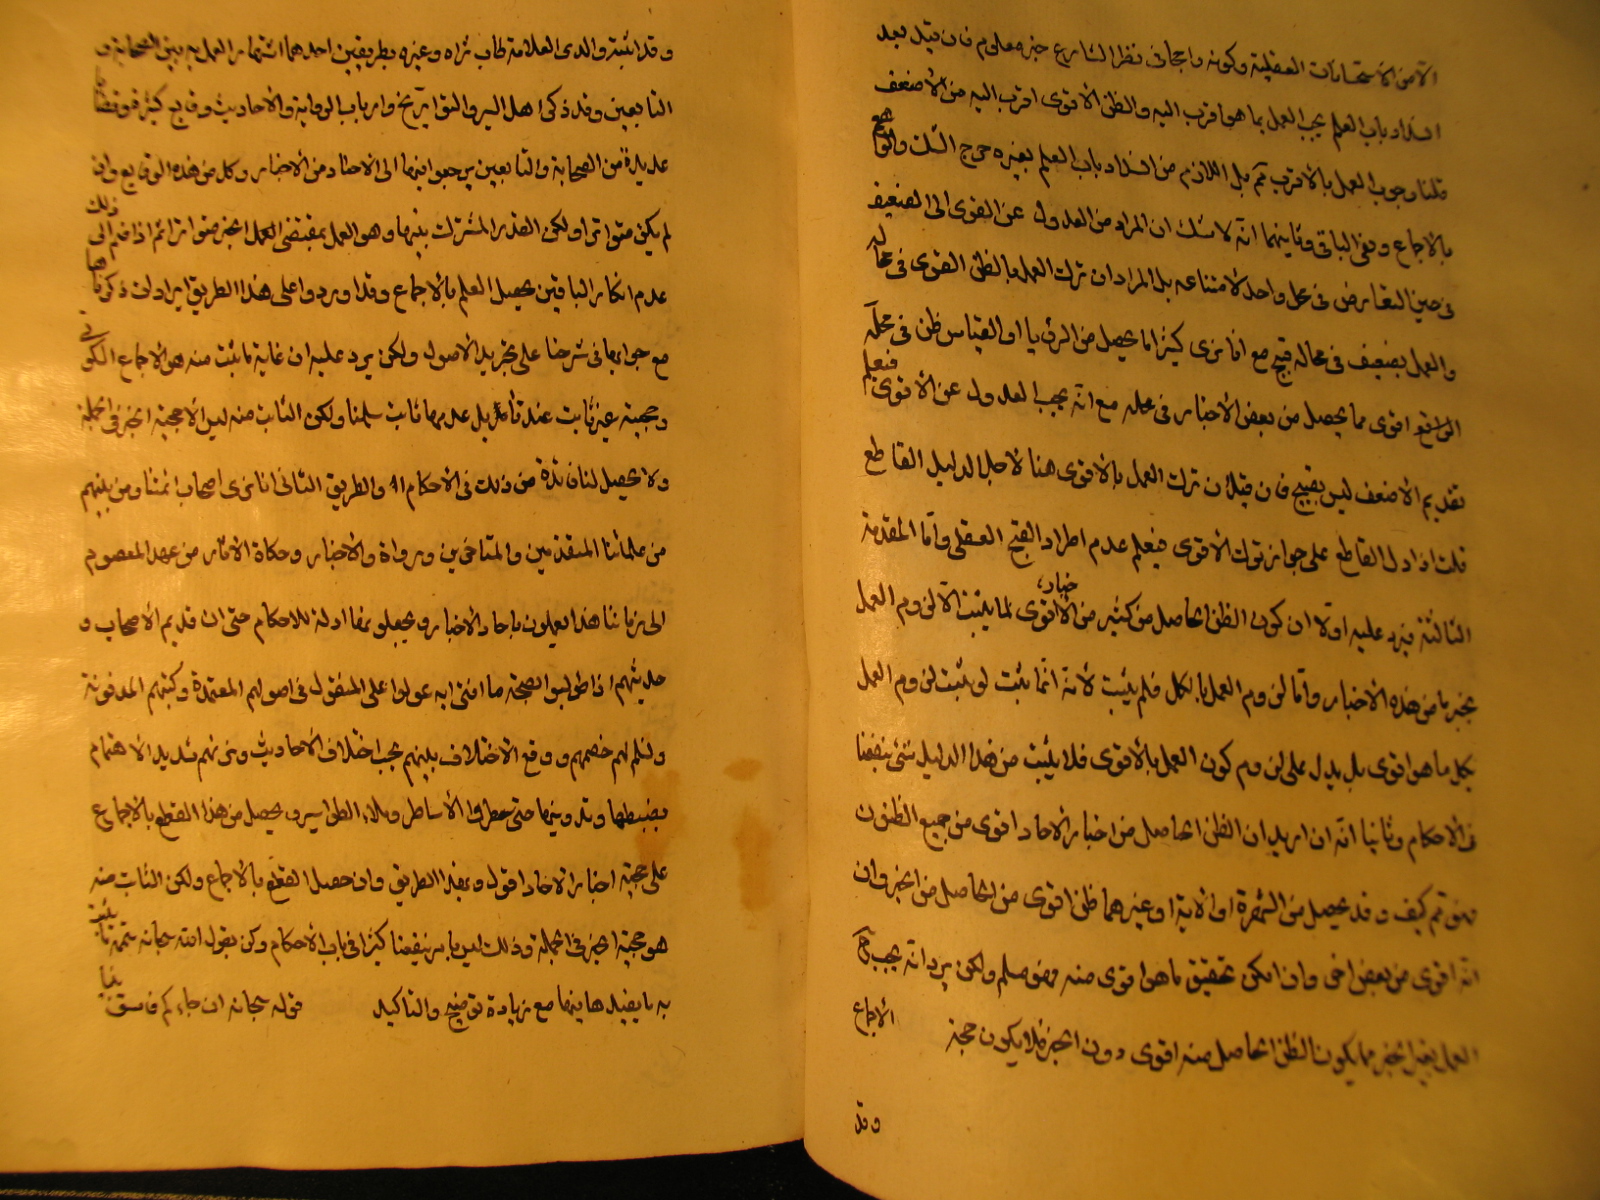 الا من الاستحسانات العقلية وكونه واجحا في نظر الشارع خبر معلوم فان قيل بعد
انسداد باب العلم يجب العمل بما هو اقرب اليه والظن الاقوى اقرب اليه من الاضعف
قلنا وجوب العمل بالاقرب ثم بل اللازم من انسداد باب العلم بغيره حرج الشك والوهم
بالاجماع وبقي الباقي وثانيهما انه لا شك ان المراد من العدول عن القوى الى الضعيف
في حين التعارض في محل واحد لامتناعه بل المراد ان ترك العمل بالظن القوى في محاله
والعمل بضعيف في محاله قبيح مع انا نرى كثيرا ما يحصل من الرؤيا او القياس ظن في محله
الواقع اقوى مما يحصل من بعض الاخبار في محله مع انه يجب العدول عن الاقوى فنعلم
تقديم الاضعف ليس بقبيح فان قيل ان ترك العمل بالاقوى هنا لاجل الدليل القاطع
قلت اذا دل القاطع على جواز ترك الاقوى فيعلم عدم اطراد القبح العقلي واما المقدمة
الثالثة فيرد عليه اولا ان كون الظن الحاصل من كثير من الاخبار اقوى لما يثبت الا لزوم العمل
بخبر ما من هذه الاخبار واما لزوم العمل بالكل فلم يثبت لانه انما يثبت لو يثبت لزوم العمل
بكل ما هو اقوى بل يدل على لزوم كون العمل بالاقوى فلا يثبت من هذا الدليل شئ ينفعنا
في الاحكام وثانيا انه ان اريد ان الظن الحاصل من اخبار الاحاد اقوى من جميع الظنون
فهو ثم كيف وقد يحصل من الشهرة او الاية او غيرهما ظن اقوى من الحاصل من الخبر وان
انه اقوى من بعض اخر وان امكن تحقيق ما هو اقوى منه فهو مسلم ولكن يرد انه يجب ح
العمل بغير الخبر مما يكون الظن الحاصل منه اقوى دون الخبر فلا يكون حجة الاجماع
وقد
وقد اثبته والدى العلامة طاب ثراه وغيره بطريقين احدهما اشتهار العمل به بين الصحابة و
التابعين وقد ذكر اهل السير والتواريخ وارباب الرواية والاحاديث وقايع كثيرة وقضايا
عديدة من الصحابة والتابعين يرجعوا فيها الى الاحاد من الاخبار وكل من هذه الوقايع وان
لم يكن متواترا ولكن القدر المشترك بينها وهو العمل بمقتضى الخبر متواتر ثم اذا ضم الى ذلك
عدم انكار الباقين يحصل العلم بالاجماع وقد اوردوا على هذا الطريق ايرادات ذكرناها
مع جوابها في شرحنا على تجريد الاصول ولكن يرد عليه ان غاية ما يثبت منه هو الاجماع السكوتي
وحجيته غير ثابت عندنا بل عدمها ثابت سلمنا ولكن الثابت منه ليس الا حجية الخبر في الجملة
ولا يحصل لنا فائدة من ذلك في الاحكام والطريق الثاني انا نرى اصحاب ائمتنا ومن يليهم
من علمائنا المتقدمين والمتاخرين ورواة الاخبار وحكاة الاثار من عهد المعصوم
الى زماننا هذا يعملون باحاد الاخبار ويجعلونها ادلة للاحكام حتى ان قديم الاصحاب و
حديثهم اذا طولبوا بصحة ما افتى به عولوا على المنقول في اصولهم المعتمدة وكتبهم المدونة
وتسلم لهم خصمهم ووقع الاختلاف بينهم بحسب اختلاف الاحاديث ونرى منهم شديد الاهتمام
بضبطها وتدوينها حتى الاساطر وبلاد الطي اسير ويحصل من هذا القطع بالاجماع
على حجية اخبار الاحاد اقول وبهذا الطريق وان حصل القطع بالاجماع ولكن الثابت منه
هو حجية الخبر في الجملة وذلك ليس بامر ينفعنا كثيرا في باب الاحكام وكن بقول الله سبحانه
به ما يفيدها بينهما مع زيادة توضيح والتاكيد قوله سبحانه ان جاءكم فاسق بنبا